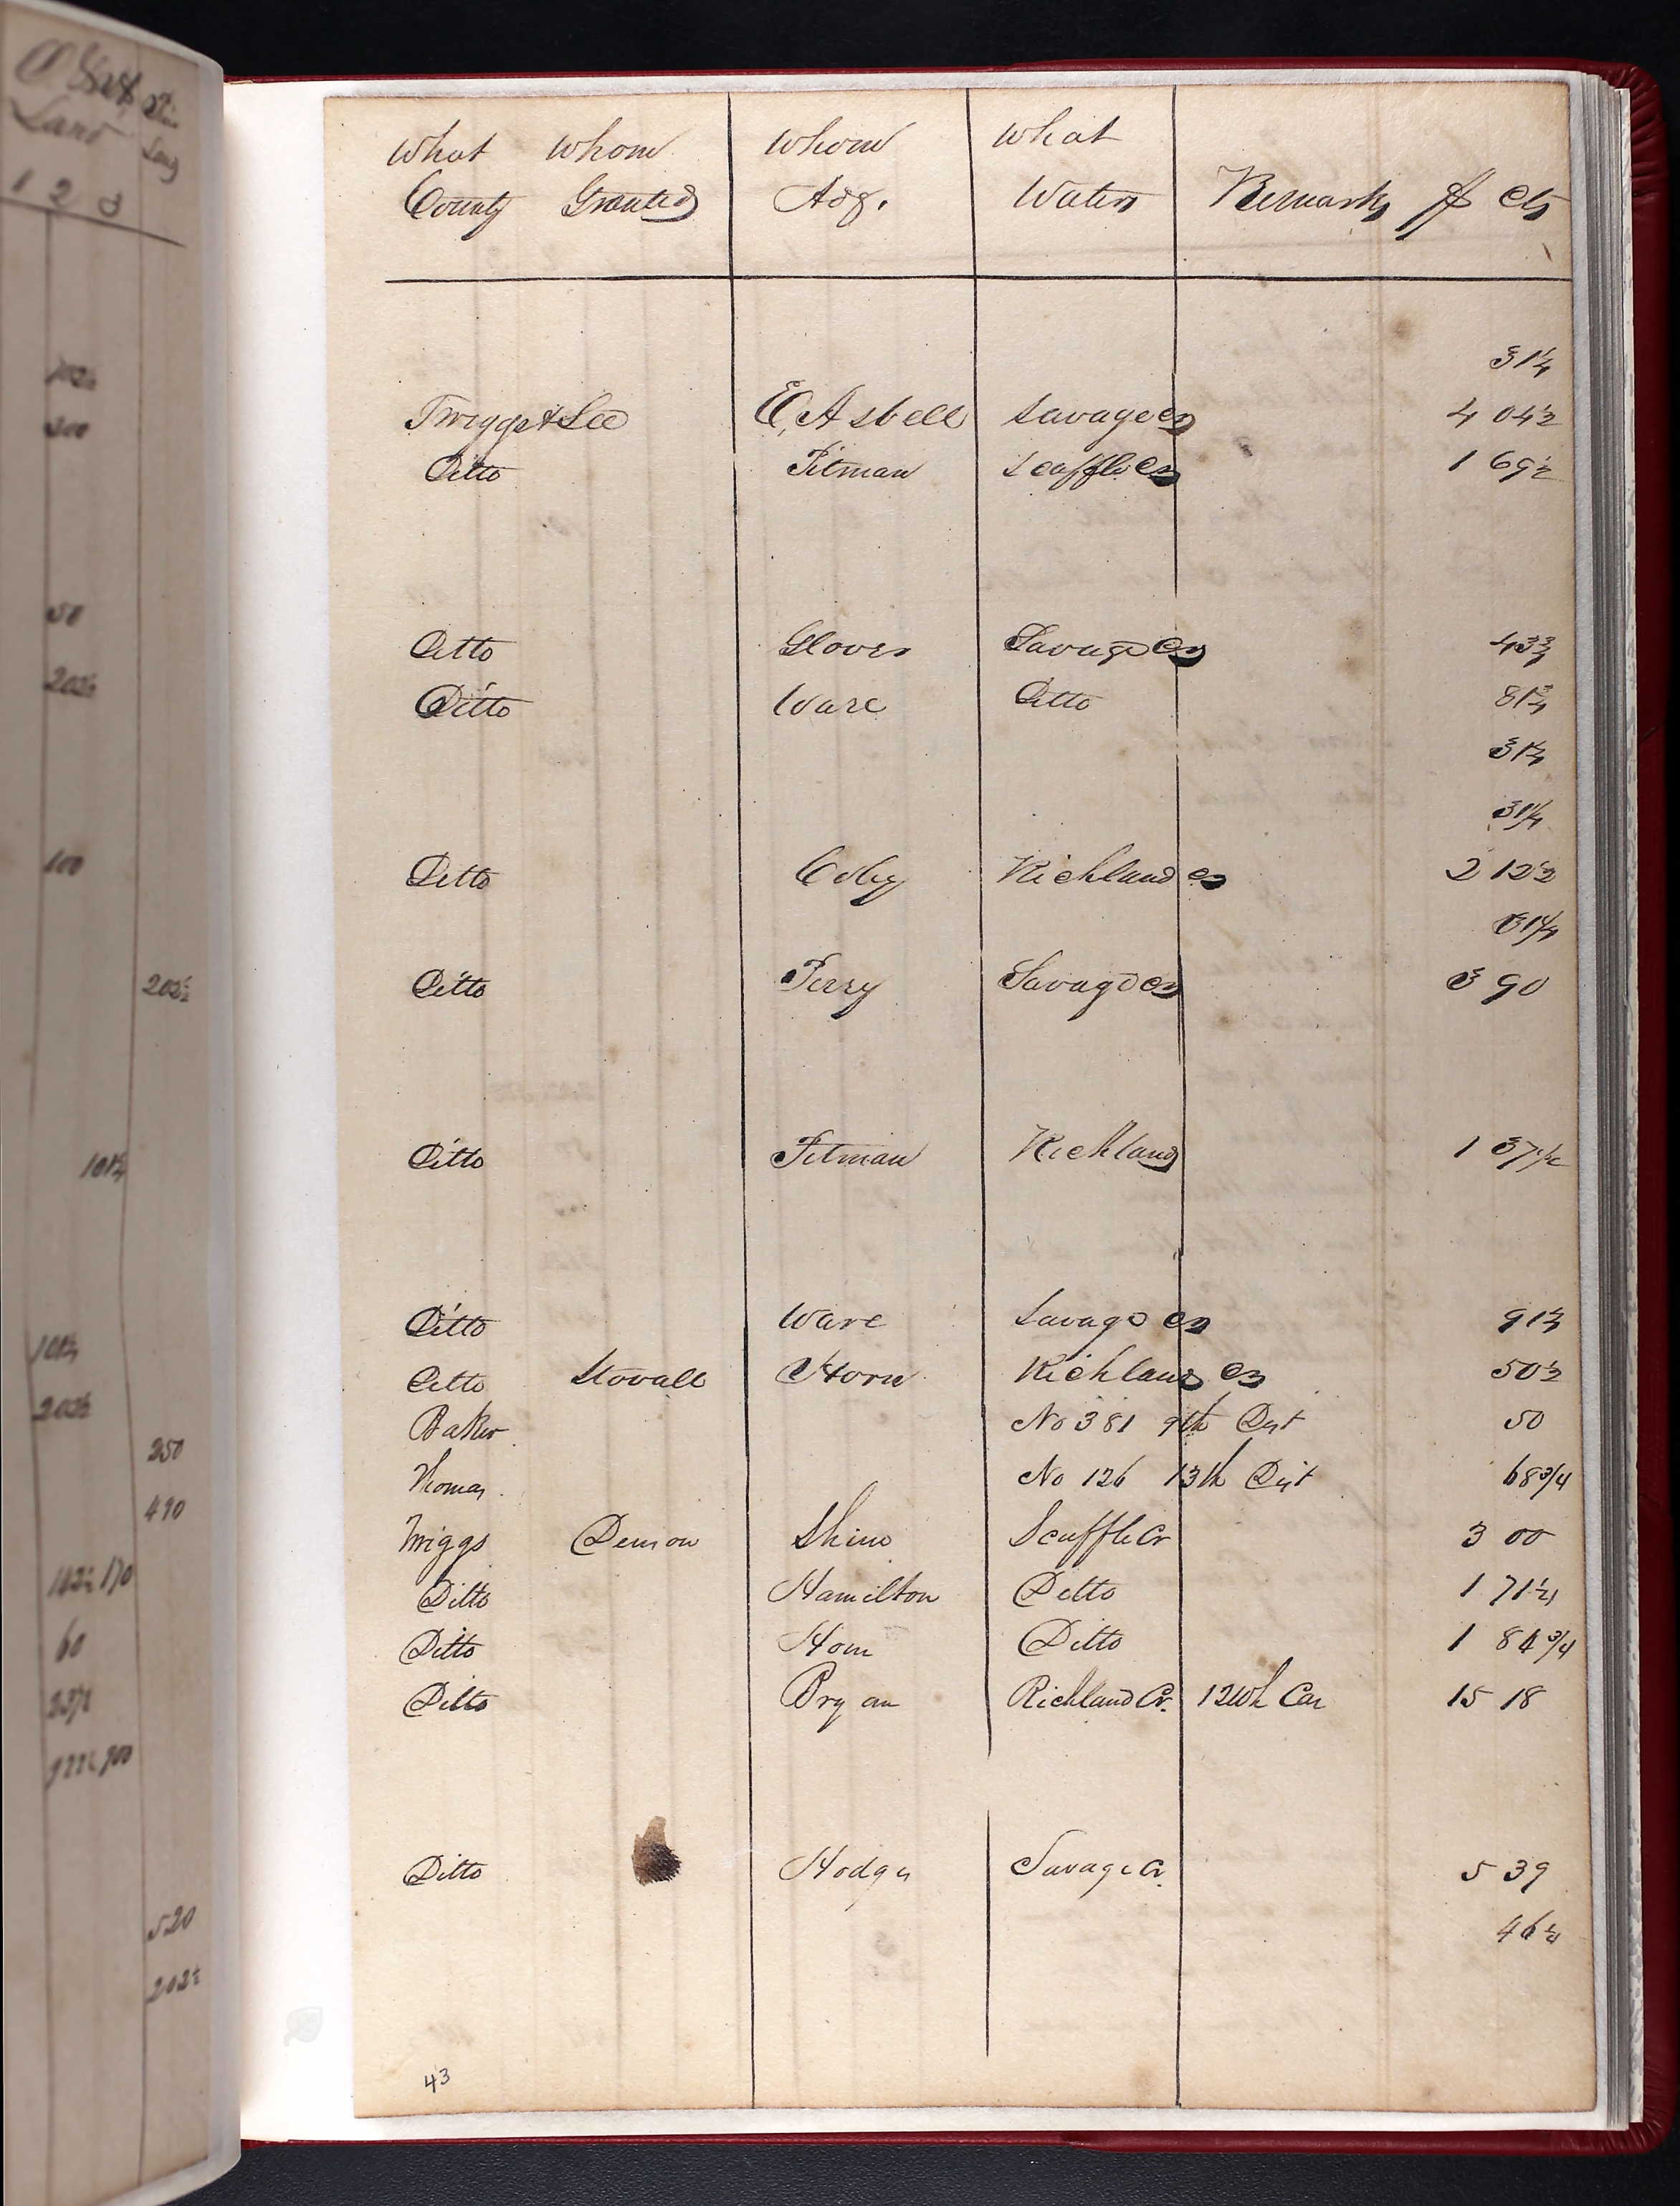 What Whom Whom What
County Granted Adg. Waters Remarks $ Cts
31¼
Twiggs & Lee E. Asbell Savage Cr 4 04½
Ditto Pitman Scuffle Cr 1 69½
Ditto Glover Savage Cr 43¾
Ditto Ware Ditto 81¾
31¼
31¼
Ditto Coby Richland Cr 2 12½
31¼
Ditto Perry Savage Cr 3 90
Ditto Pitman Richland 1 37½
Ditto Ware Savage Cr 91¾
Ditto Stovall Horn Richland Cr 50½
Baker No 381 9th Dist 50
Thomas No 126 13th Dist 68¾
Twiggs Denson Shine Scuffle Cr 3 00
Ditto Hamilton Ditto 1 71¼
Ditto Horn Ditto 1 84¾
Ditto Bryan Richland Cr. 12 Wh Car 15 18
Ditto Hodges Savage Cr. 5 39
46¼
43
Land
1 2 3
202½
300
50
202½
100
202½
101¼
101¼
202½
250
490
60
520
202½